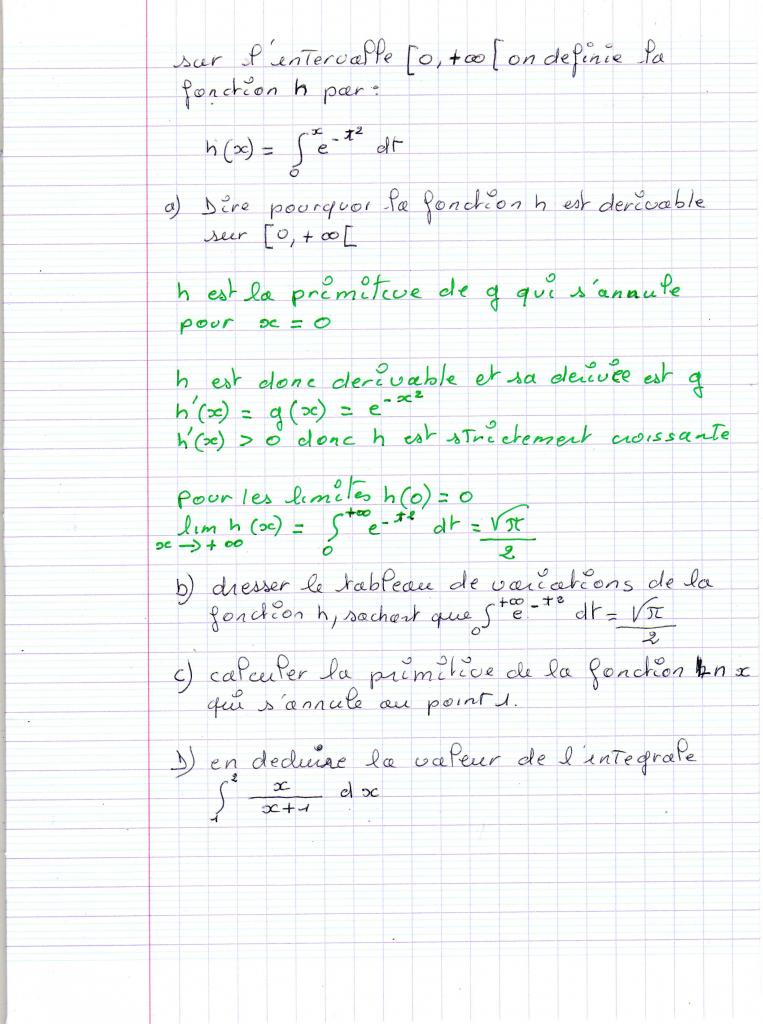 sur l'intervalle [0, +∞[ on definie la
fonction h par :
h(x) = ∫₀ˣ e^-t² dt
a) Dire pourquoi la fonction h est derivable
sur [0, +∞[
h est la primitive de g qui s'annule
pour x = 0
h est donc derivable et sa derivée est g
h'(x) = g(x) = e^-x²
h'(x) > 0 donc h est strictement croissante
pour les limites h(0) = 0
lim h(x) = ∫₀^+∞ e^-t² dt = √π/2
x → +∞
b) dresser le tableau de variations de la
fonction h, sachant que ∫₀^+∞ e^-t² dt = √π/2
c) calculer la primitive de la fonction ln x
qui s'annule au point 1.
D) en deduire la valeur de l'integrale
∫₁² x/(x+1) dx